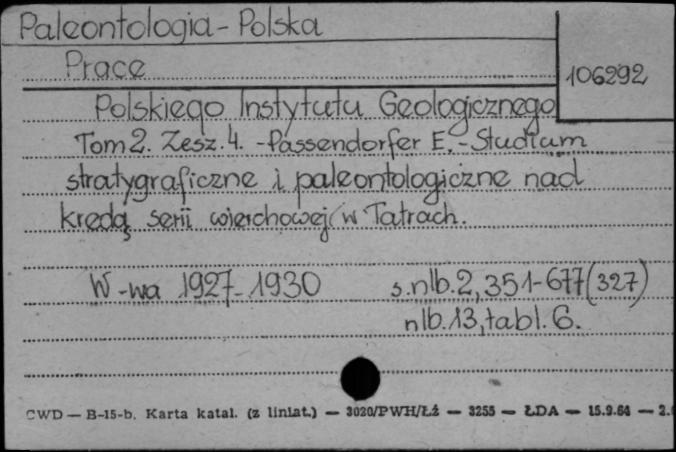 Paleontologia - Polska
Prace
106292
Polskiego Instytutu Geologicznego
Tom 2. Zesz. 4. - Passendorfer E. - Studium
stratygraficzne i paleontologiczne nad
kredą serii wierchowej w Tatrach.
W-wa 1927-1930 s. nlb. 2, 351-677 (327)
nlb. 13, tabl. 6.
CWD — B-15-b. Karta katal. (z liniat.) — 3020/PWH/Łż — 3255 — ŁDA — 15.9.64 — 2.